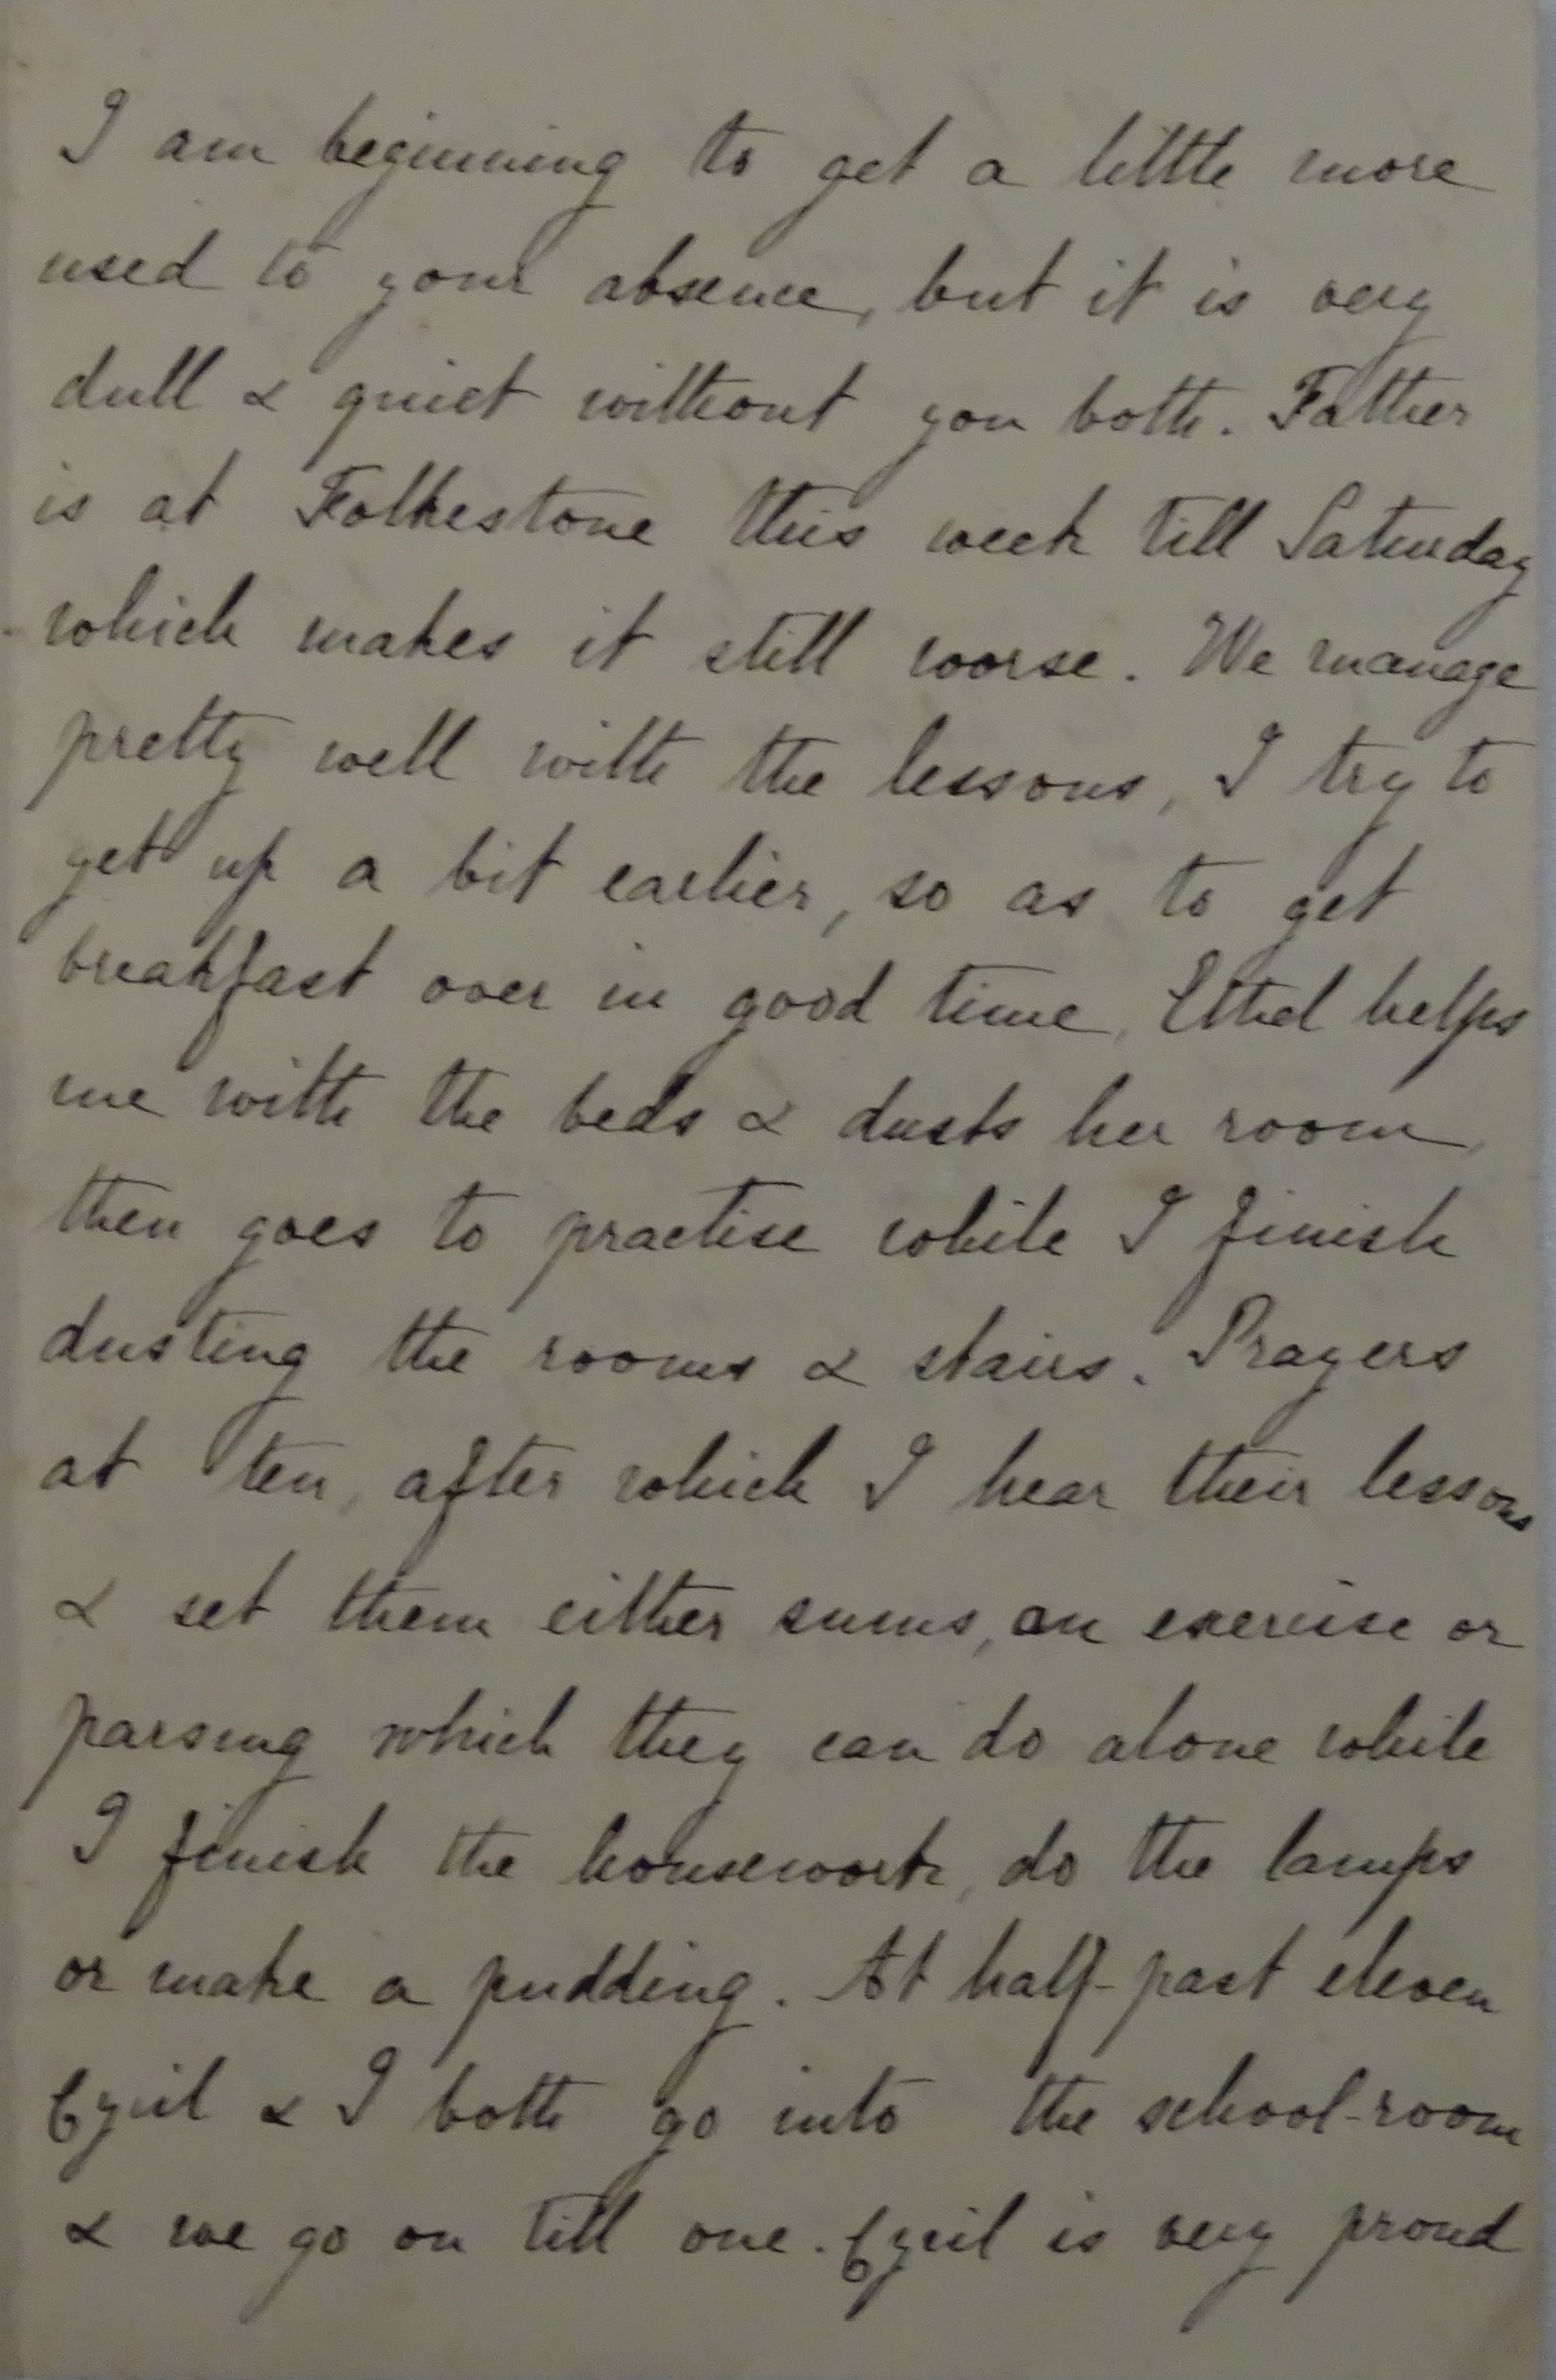 I am beginning to get a little more
used to your absence, but it is very
dull & quiet without you both. Father
is at Folkestone this week till Saturday
which makes it still worse. We manage
pretty well with the lessons, I try to
get up a bit earlier, so as to get
breakfast over in good time, Ethel helps
me with the beds & dusts her room,
then goes to practise while I finish
dusting the rooms & stairs. Prayers
at ten, after which I hear their lessons
& set them either sums, an exercise or
parsing which they can do alone while
I finish the housework, do the lamps
or make a pudding. At half-past eleven
Cyril & I both go into the school-room
& we go on till one. Cyril is very proud